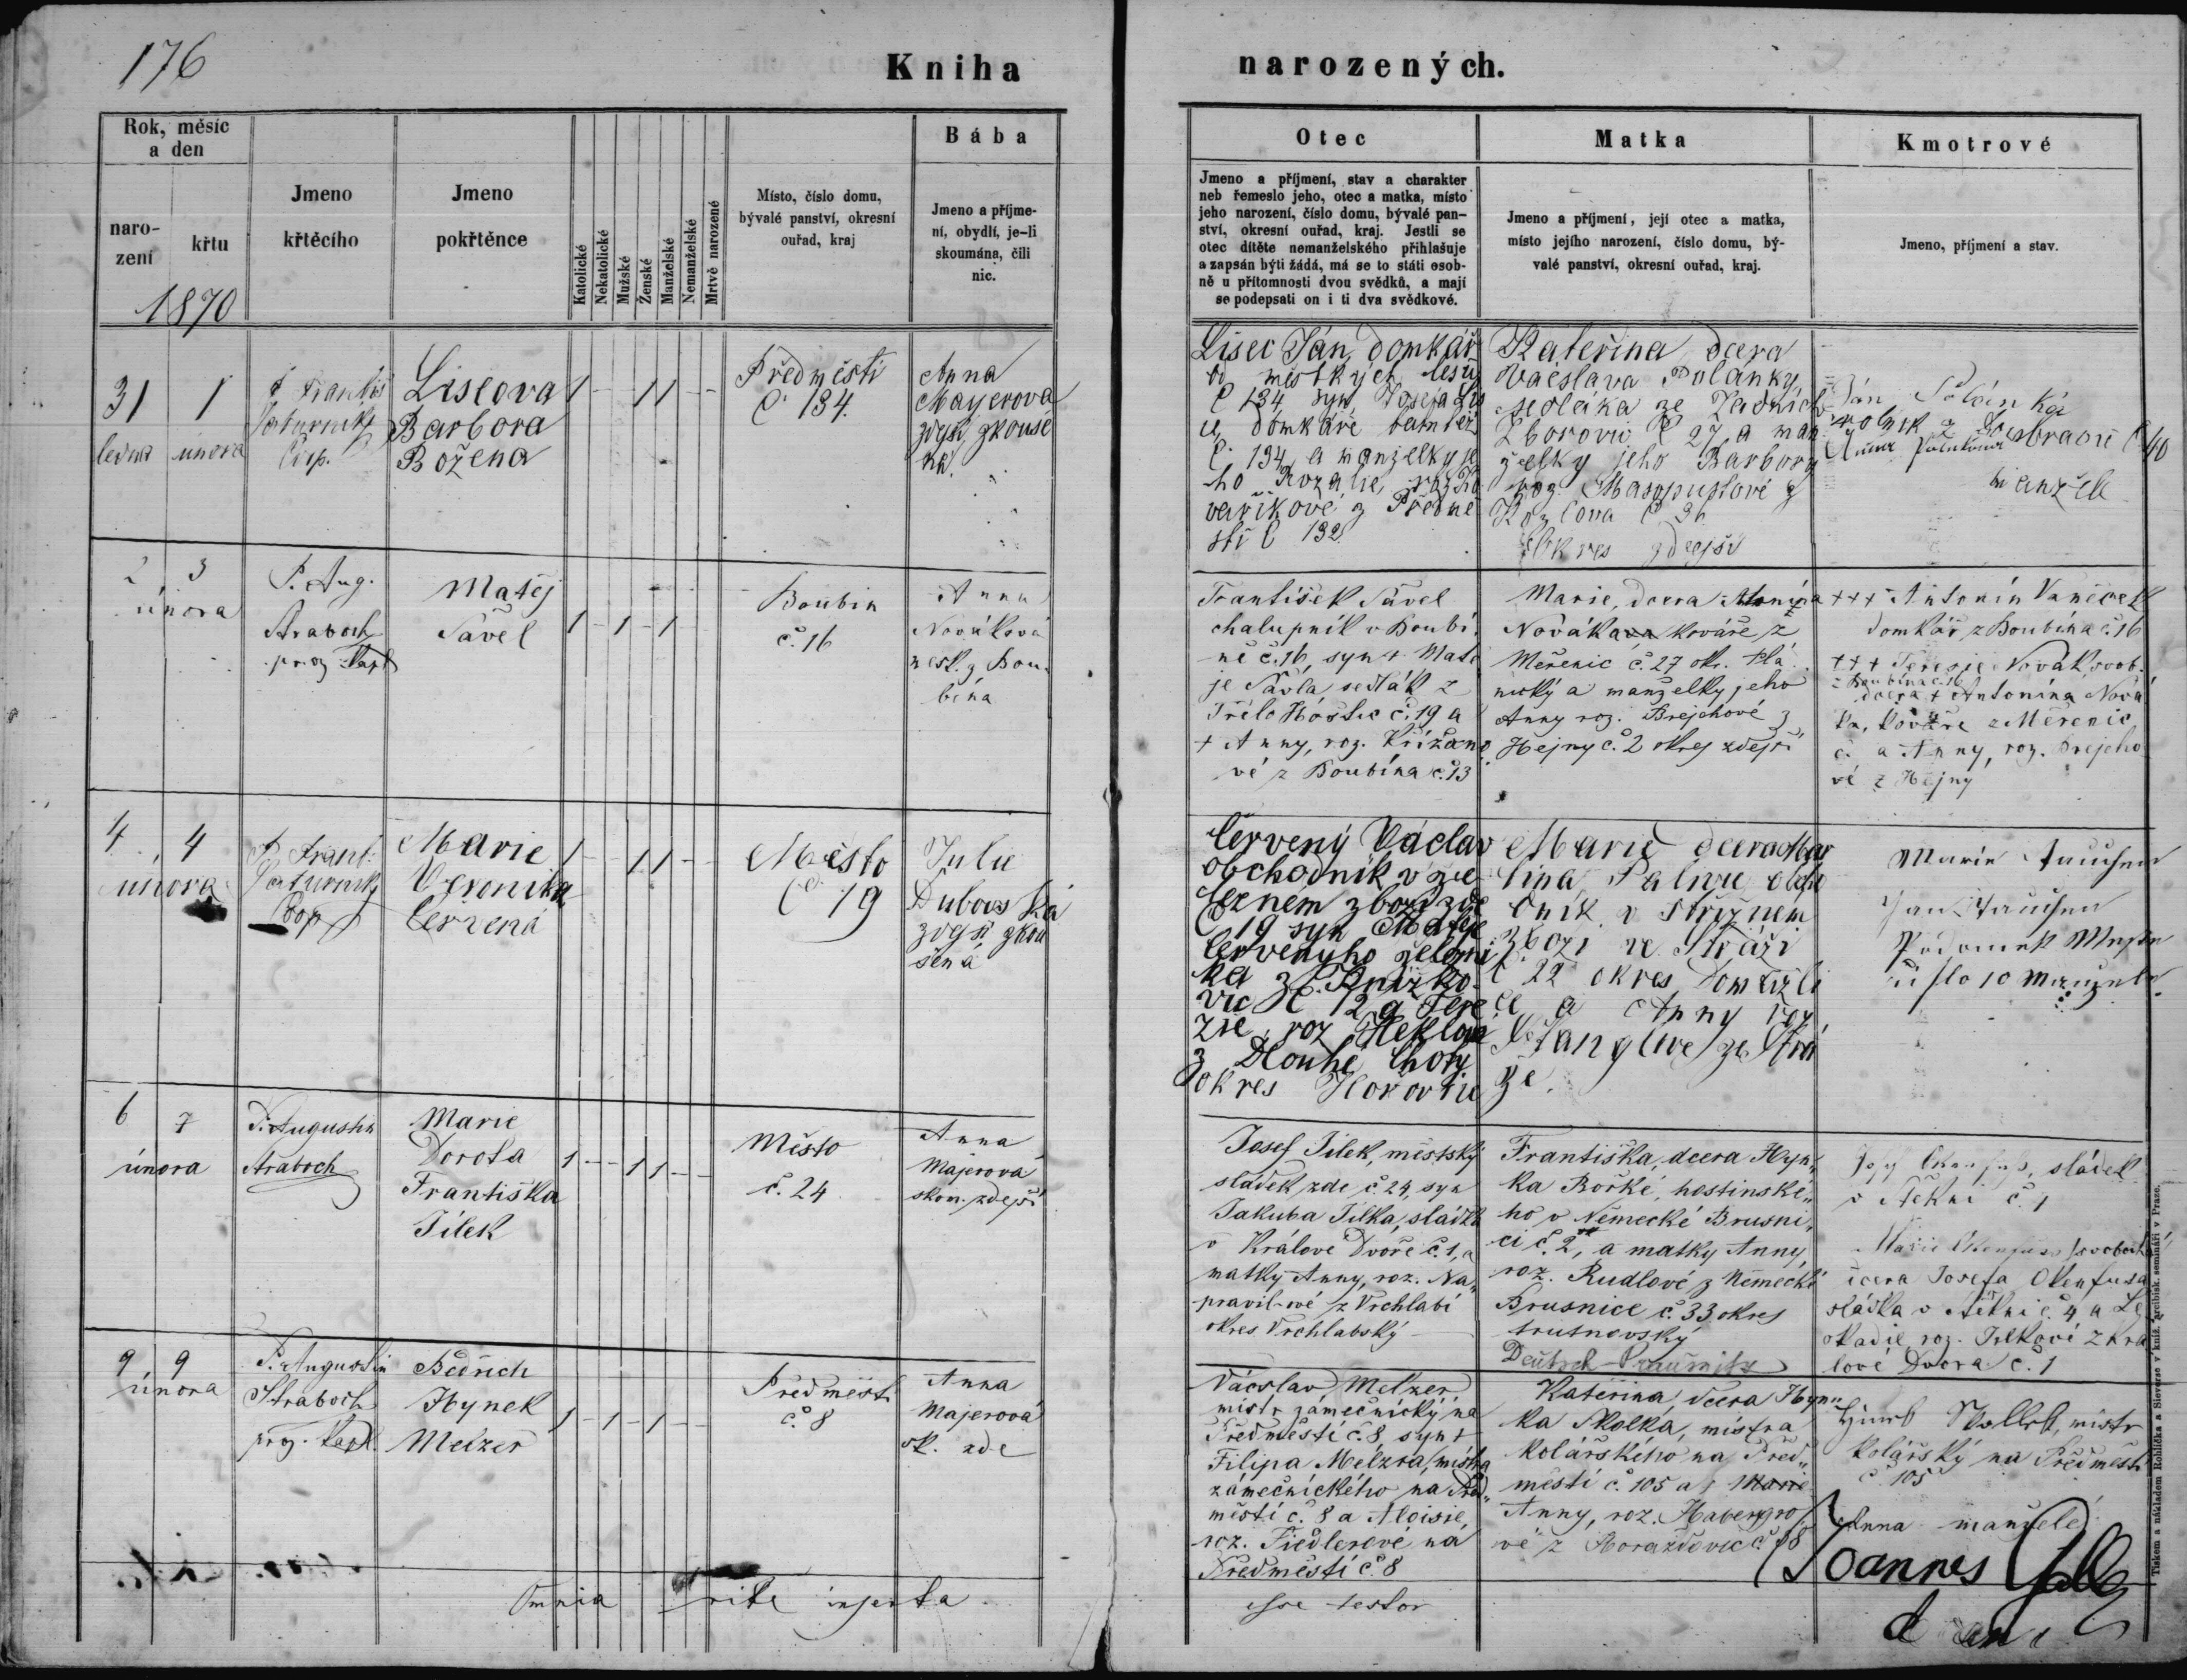 176
Kniha narozených.
Rok, měsíc
a den
naro-
zení
křtu
1870
Jmeno
křtěcího
Jmeno
pokřtěnce
Katolické
Nekatolické
Mužské
Ženské
Manželské
Nemanželské
Mrtvě narozené
Místo, číslo domu,
bývalé panství, okresní
ouřad, kraj
Bába
Jmeno a příjme-
ní, obydlí, je-li
skoumána, čili
nic.
Otec
Jmeno a příjmení, stav a charakter
neb řemeslo jeho, otec a matka, místo
jeho narození, číslo domu, bývalé pan-
ství, okresní ouřad, kraj. Jestli se
otec dítěte nemanželského přihlašuje
a zapsán býti žádá, má se to státi osob-
ně u přítomnosti dvou svědků, a mají
se podepsati on i ti dva svědkové.
Matka
Jmeno a příjmení, její otec a matka,
místo jejího narození, číslo domu, bý-
valé panství, okresní ouřad, kraj.
Kmotrové
Jmeno, příjmení a stav.
31 1
ledna února
P. Františ
Coop.
Liscova
Barbora
Božena
1 - - 1 1 - -
Předměstí
č. 134.
Anna
Mayerova
zdejší zkouše
ná
Lisec Ján, domkář
z městkých lesů
č 134 syn Josefa Lis
ce domkáře tamtéž
č. 134 a manželky je
ho Rozalie, roz Ko
vaříkové z Předmě
stí č 132
Kateřina dcera
Vácslava Polánky
sedláka ze Zadních
Zborovic č 27 a man
želky jeho Barbory
roz. Masopustové z
Kozlova č 36
Okres zdejší
Ján Polánka
rolník z
Anna
č 40
manželé
2 3
února
P. Aug.
Straboch
proz. kapl
Matěj
Šavel
1 - 1 - 1
Boubin
č. 16
Anna
Nováková
nesk. z Bou-
bína
František Šavel
chalupník v Boubí-
ně č. 16, syn + Matě
je Šavla, sedlák z
Hoštic č. 19 a
+ Anny, roz. Křížano
vé z Boubína č. 13
Marie, dcera Antonína
Nováka, kováře z
Měřenic č. 27 okr. Plá
nický a manželky jeho
Anny roz. Brejchové z
Hejny č. 2 okres zdejší
+++ Antonín Vaněček
domkář z Boubína č. 16
+++ Terezie Novák, svob.
z Boubína č. 16
dcera + Antonína Nová
ka, kováře z Měřenic
č. a Anny, roz. Brejcho
vé z Hejny
4 4
února
P. Frant.
Coop
Marie
Veronika
Červená
1 - - 1 1 - -
Město
č 19
Julie
Dubovská
zdejší zkou
šená
Červený Václav
obchodník v že
lezném zboží zde
č 19 syn Matěje
Červenýho železní
ka z
č 12 a Tere
zie, roz Heklové
z Dlouhé Lhoty
okres Hořovic
Marie dcera Mar
tina Palivce obcho
dník v střižnem
zboží ve Stráži
č 22 okres Domažli
ce a Anny roz
Štanglové ze Strá
že.
Marie
Jan
Město
číslo 10 manželé
6 7
února
P. Augustin
Straboch
Marie
Dorota
Františka
Jílek
1 - - 1 1 - -
Město
č. 24
Anna
Majerová
skou. zdejší
Josef Jílek, městský
sládek zde č. 24, syn
Jakuba Jílka, sládka
v Králové Dvoře č. 1, a
matky Anny, roz. Na-
pravil-ové z Vrchlabí
okres Vrchlabský
Františka, dcera Hyn-
ka Borké, hostinské-
ho v Německé Brusni-
ci č. 2, a matky Anny,
roz. Rudlové z Německé
Brusnice č. 33 okres
trutnovský
Deutsch Prausnitz
sládek
v Štěkni č. 1
Marie svobod.
dcera Josefa Okenfusa
sládka v Štěkni č. 4 a Le
okadie roz. Jílkové z Krá
lové Dvora č. 1
9 9
února
P. Augustin
Straboch
proz. Kapl.
Bedřich
Hynek
Melzer
1 - 1 - 1 - -
Předměstí
č. 8
Anna
Majerová
sk. zde
Vácslav Melzer
mistr zámečnický na
Předměstí č. 8 syn +
Filipa Melzra, mistra
zámečnického na Před-
městí č. 8 a Aloisie,
roz. Fiedlerové na
Předměstí č. 8
Kateřina, dcera Hyn-
ka Skolka, mistra
kolářského na Před-
městí č. 105 a + Marie
Anny, roz. Habergro
vé z Horažďovic č 88
mistr
kolářský na Předměstí
č 105
Anna manželé
Omnia rite inserta
esse testor
Joannes
Tiskem a nákladem Rohlíčka a Sieverse v kníž. arcibisk. semináři v Praze.